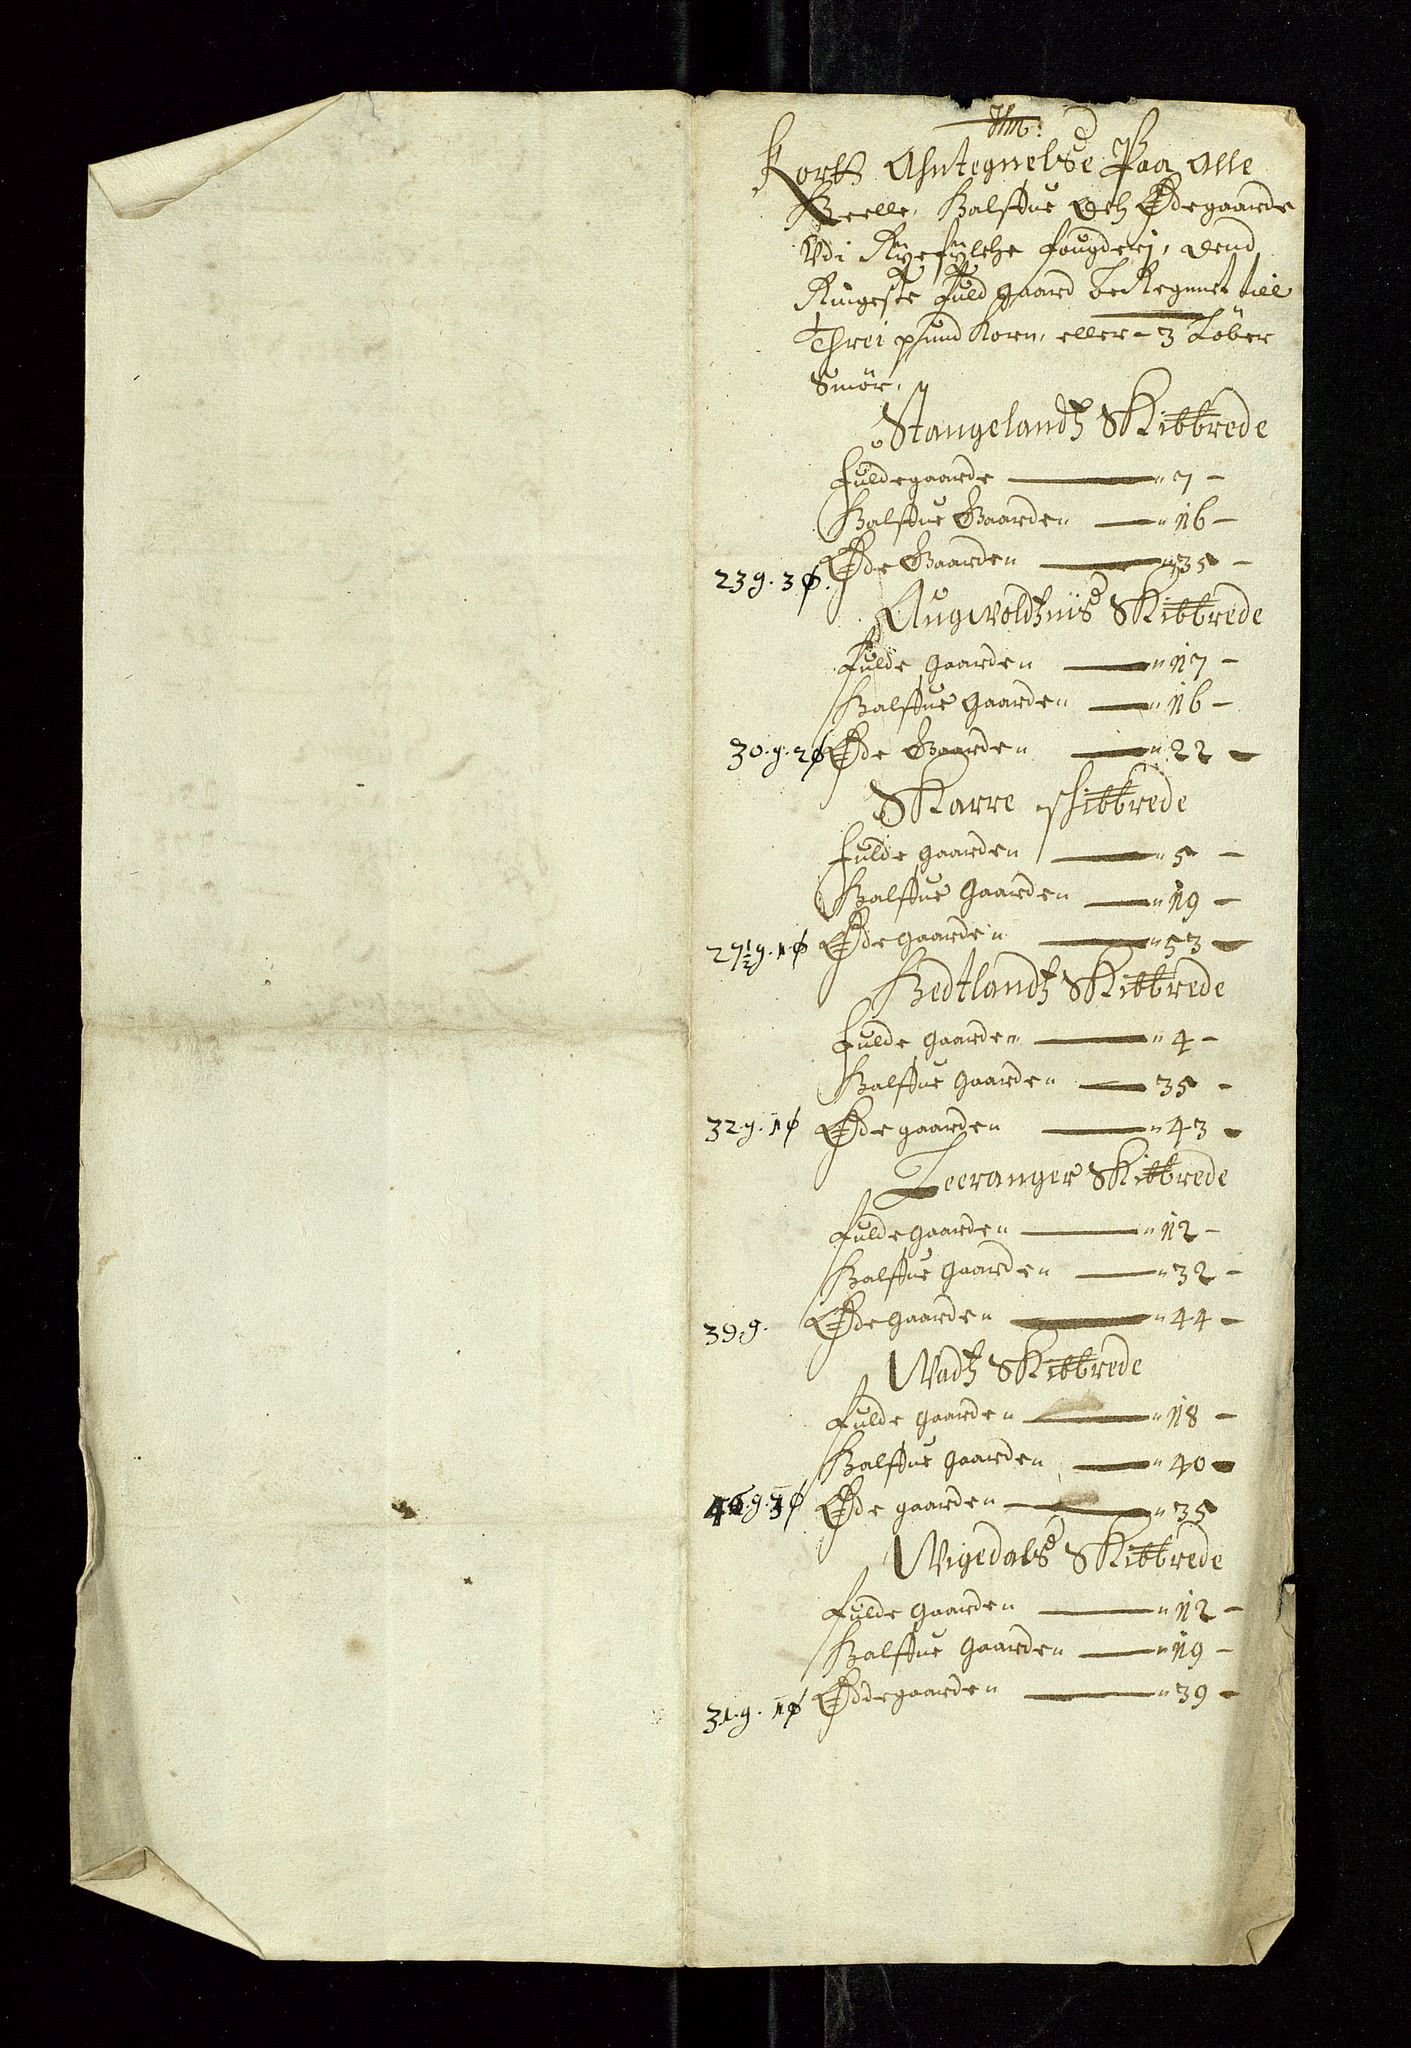 Kortt Ahntegnelse Paa Alle
Heelle, Halffue Och Ødegaarde
Vdi Ryefylche fougderj, dend
Ringeste fuld gaard beRegnet till
Threi pund Korn, eller - 3 Løber
Smør,
Stangelandtz Skibbrede
fulde gaarde — 7 -
Halffue Gaarden — 16 -
23 g. 3 ø. Øde Gaarden — 35 -
Augwoldznis Skibbrede
fulde gaarden — 17 -
Halffue Gaarden — 16 -
30. g. 2 ø Øde Gaarden — 22 -
Skarre schibbrede
fulde gaarden — 5 -
Halffue Gaarden — 19 -
27½ g. 1 ø Øde gaarden — 53 -
Hedtlandtz Skibbrede
fulde gaarden — 4 -
Halffue gaarden — 35 -
32. g. 1 ø Øde gaarden — 43 -
Leeranger Skibbrede
fulde gaarden — 12 -
Halffue gaarden — 32 -
39. g. Øde gaarden — 44 -
Wadtz Skibbrede
fulde gaarden — 18 -
Halffue gaarden — 40 -
46. g. 3 ø Øde gaarden — 35
Wigedals Skibbrede
fulde gaarden — 12 -
Halffue gaarden — 19 -
31. g. 1 ø Ødde gaarden — 39 -